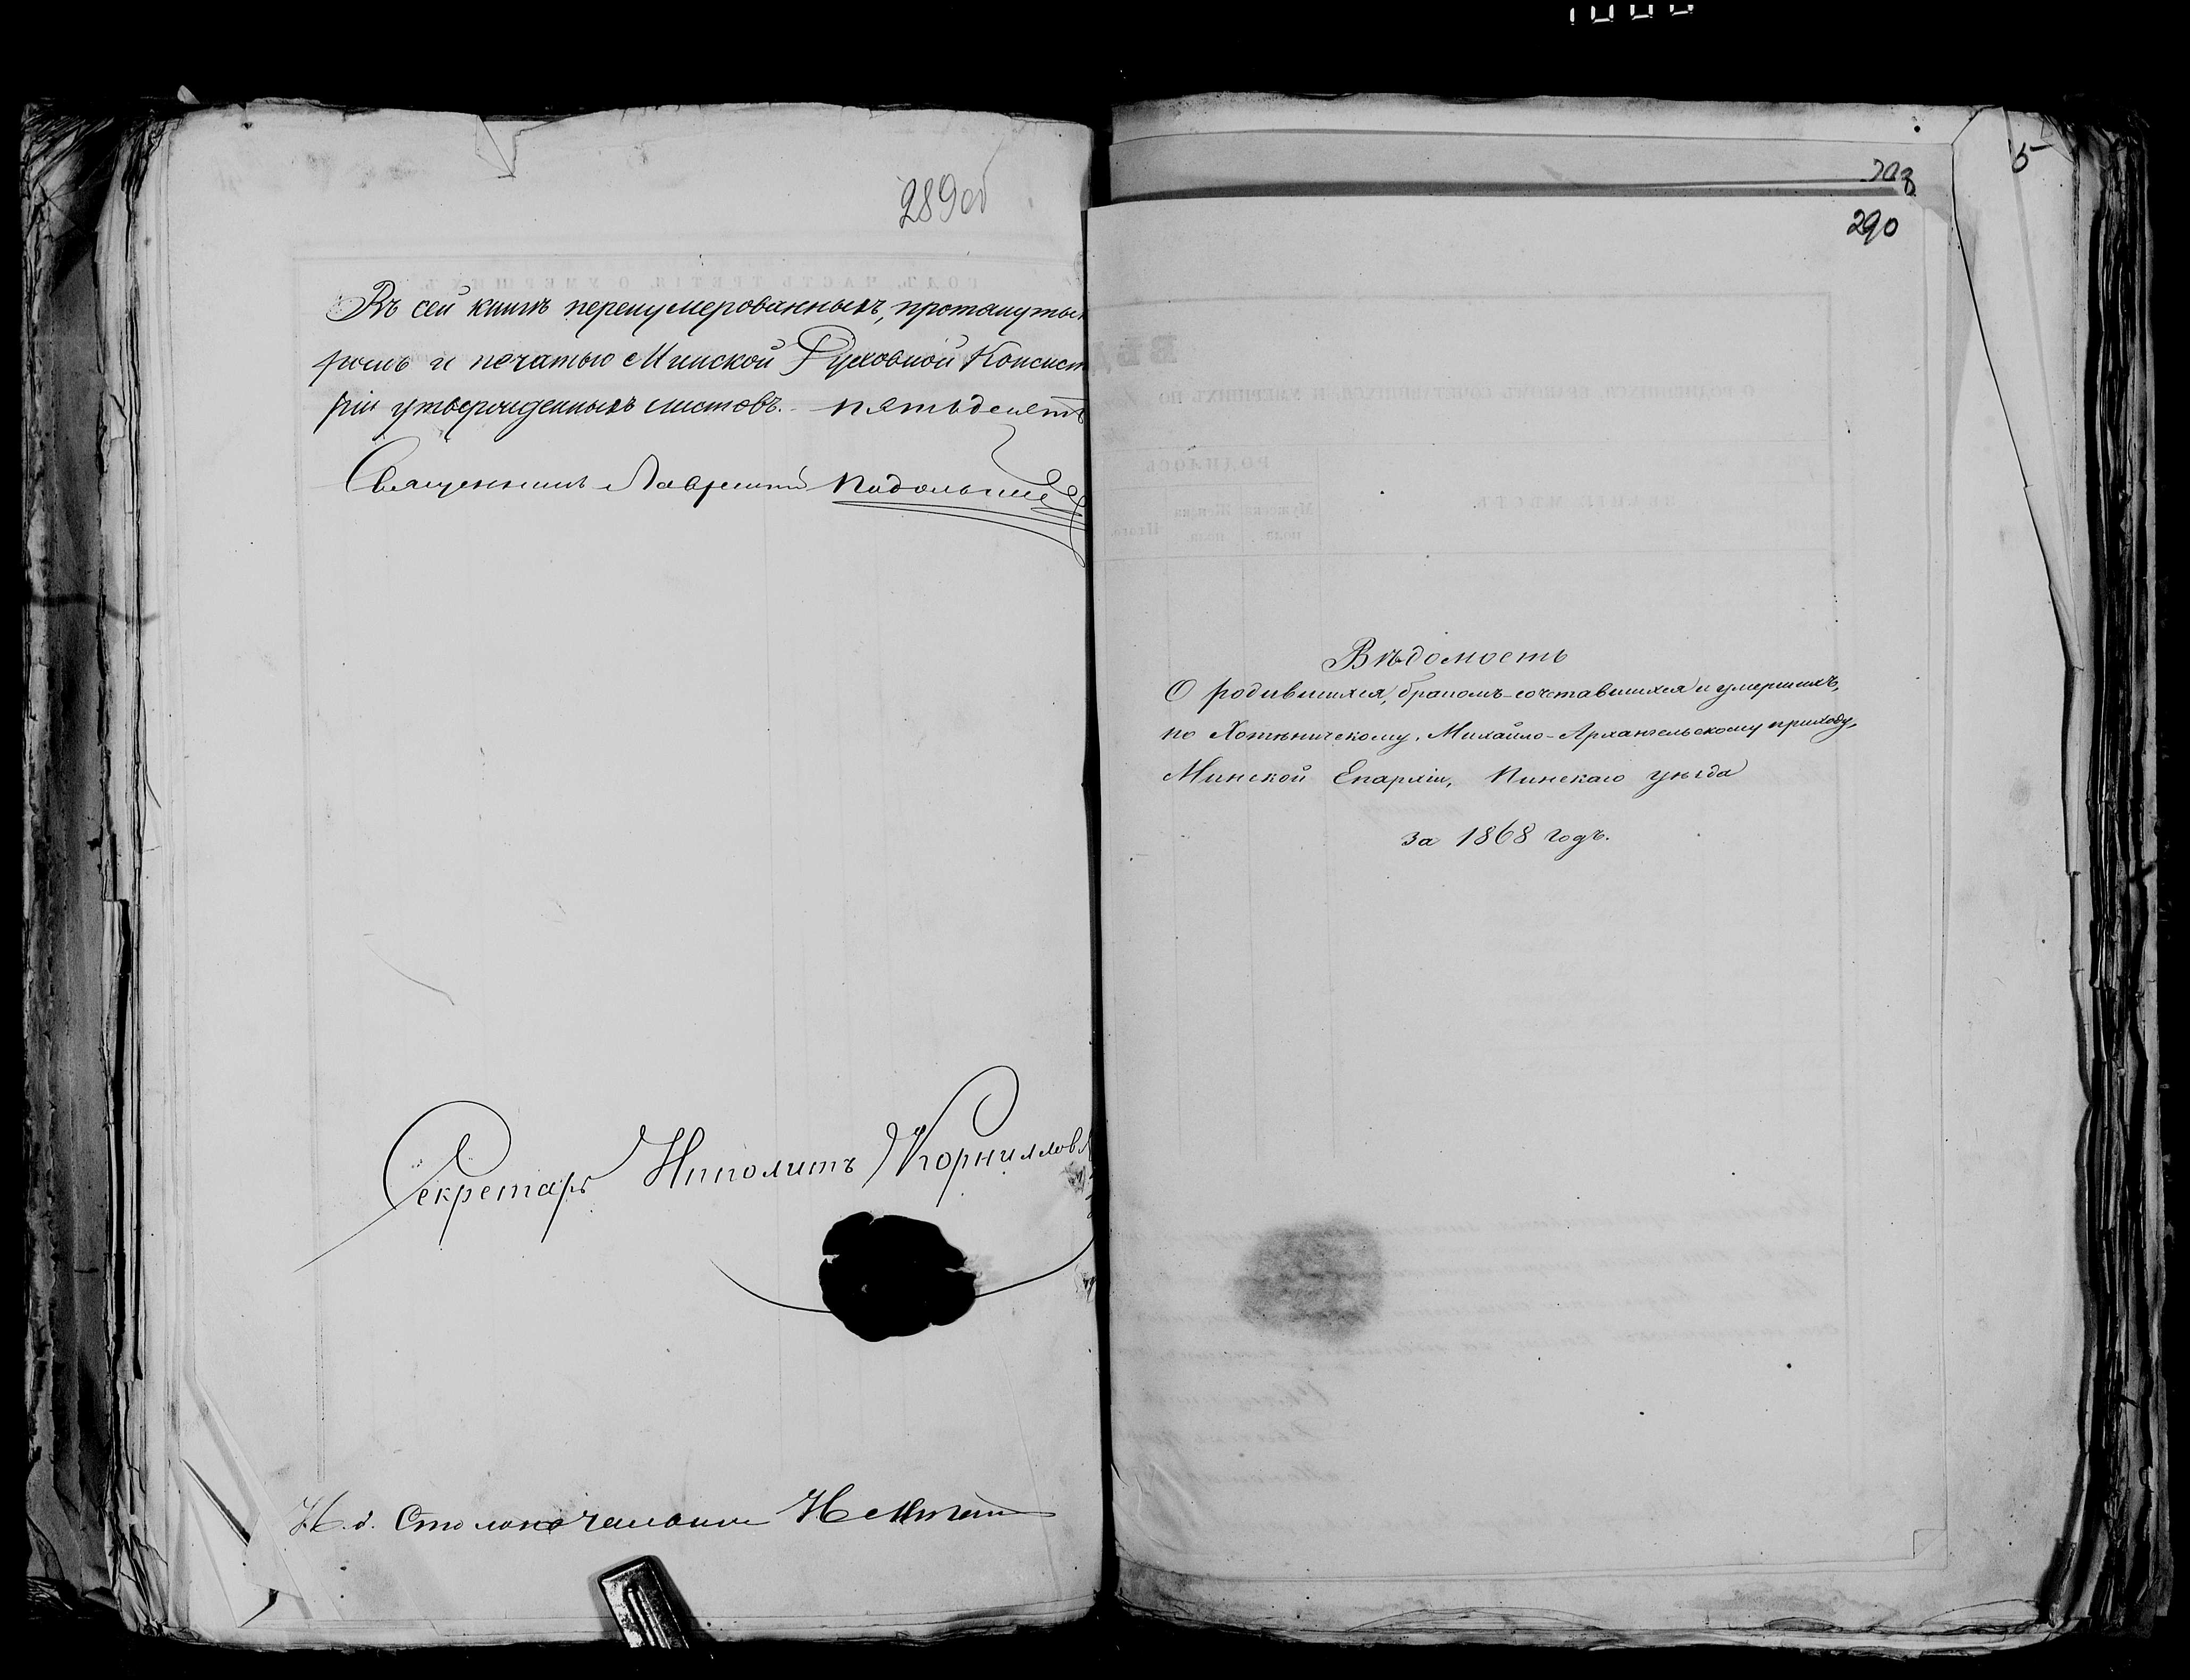 289 об
Въ сей книгѣ перенумерованныхъ, протянутых
рою и печатью Минской Духовной Консист
ріи утвержденныхъ листовъ. пятьдесятъ
Священникъ Лаврентій Подольскій
Секретарь Ипполитъ Корниллов
И. д. Столоначальника Н
5
290
Вѣдомость
О родившихся, бракомъ-сочетавшихся и умершихъ,
по Хотыничскому, Михайло-Архангельскому приходу,
Минской Епархіи, Пинскаго уѣзда
за 1868 годъ.